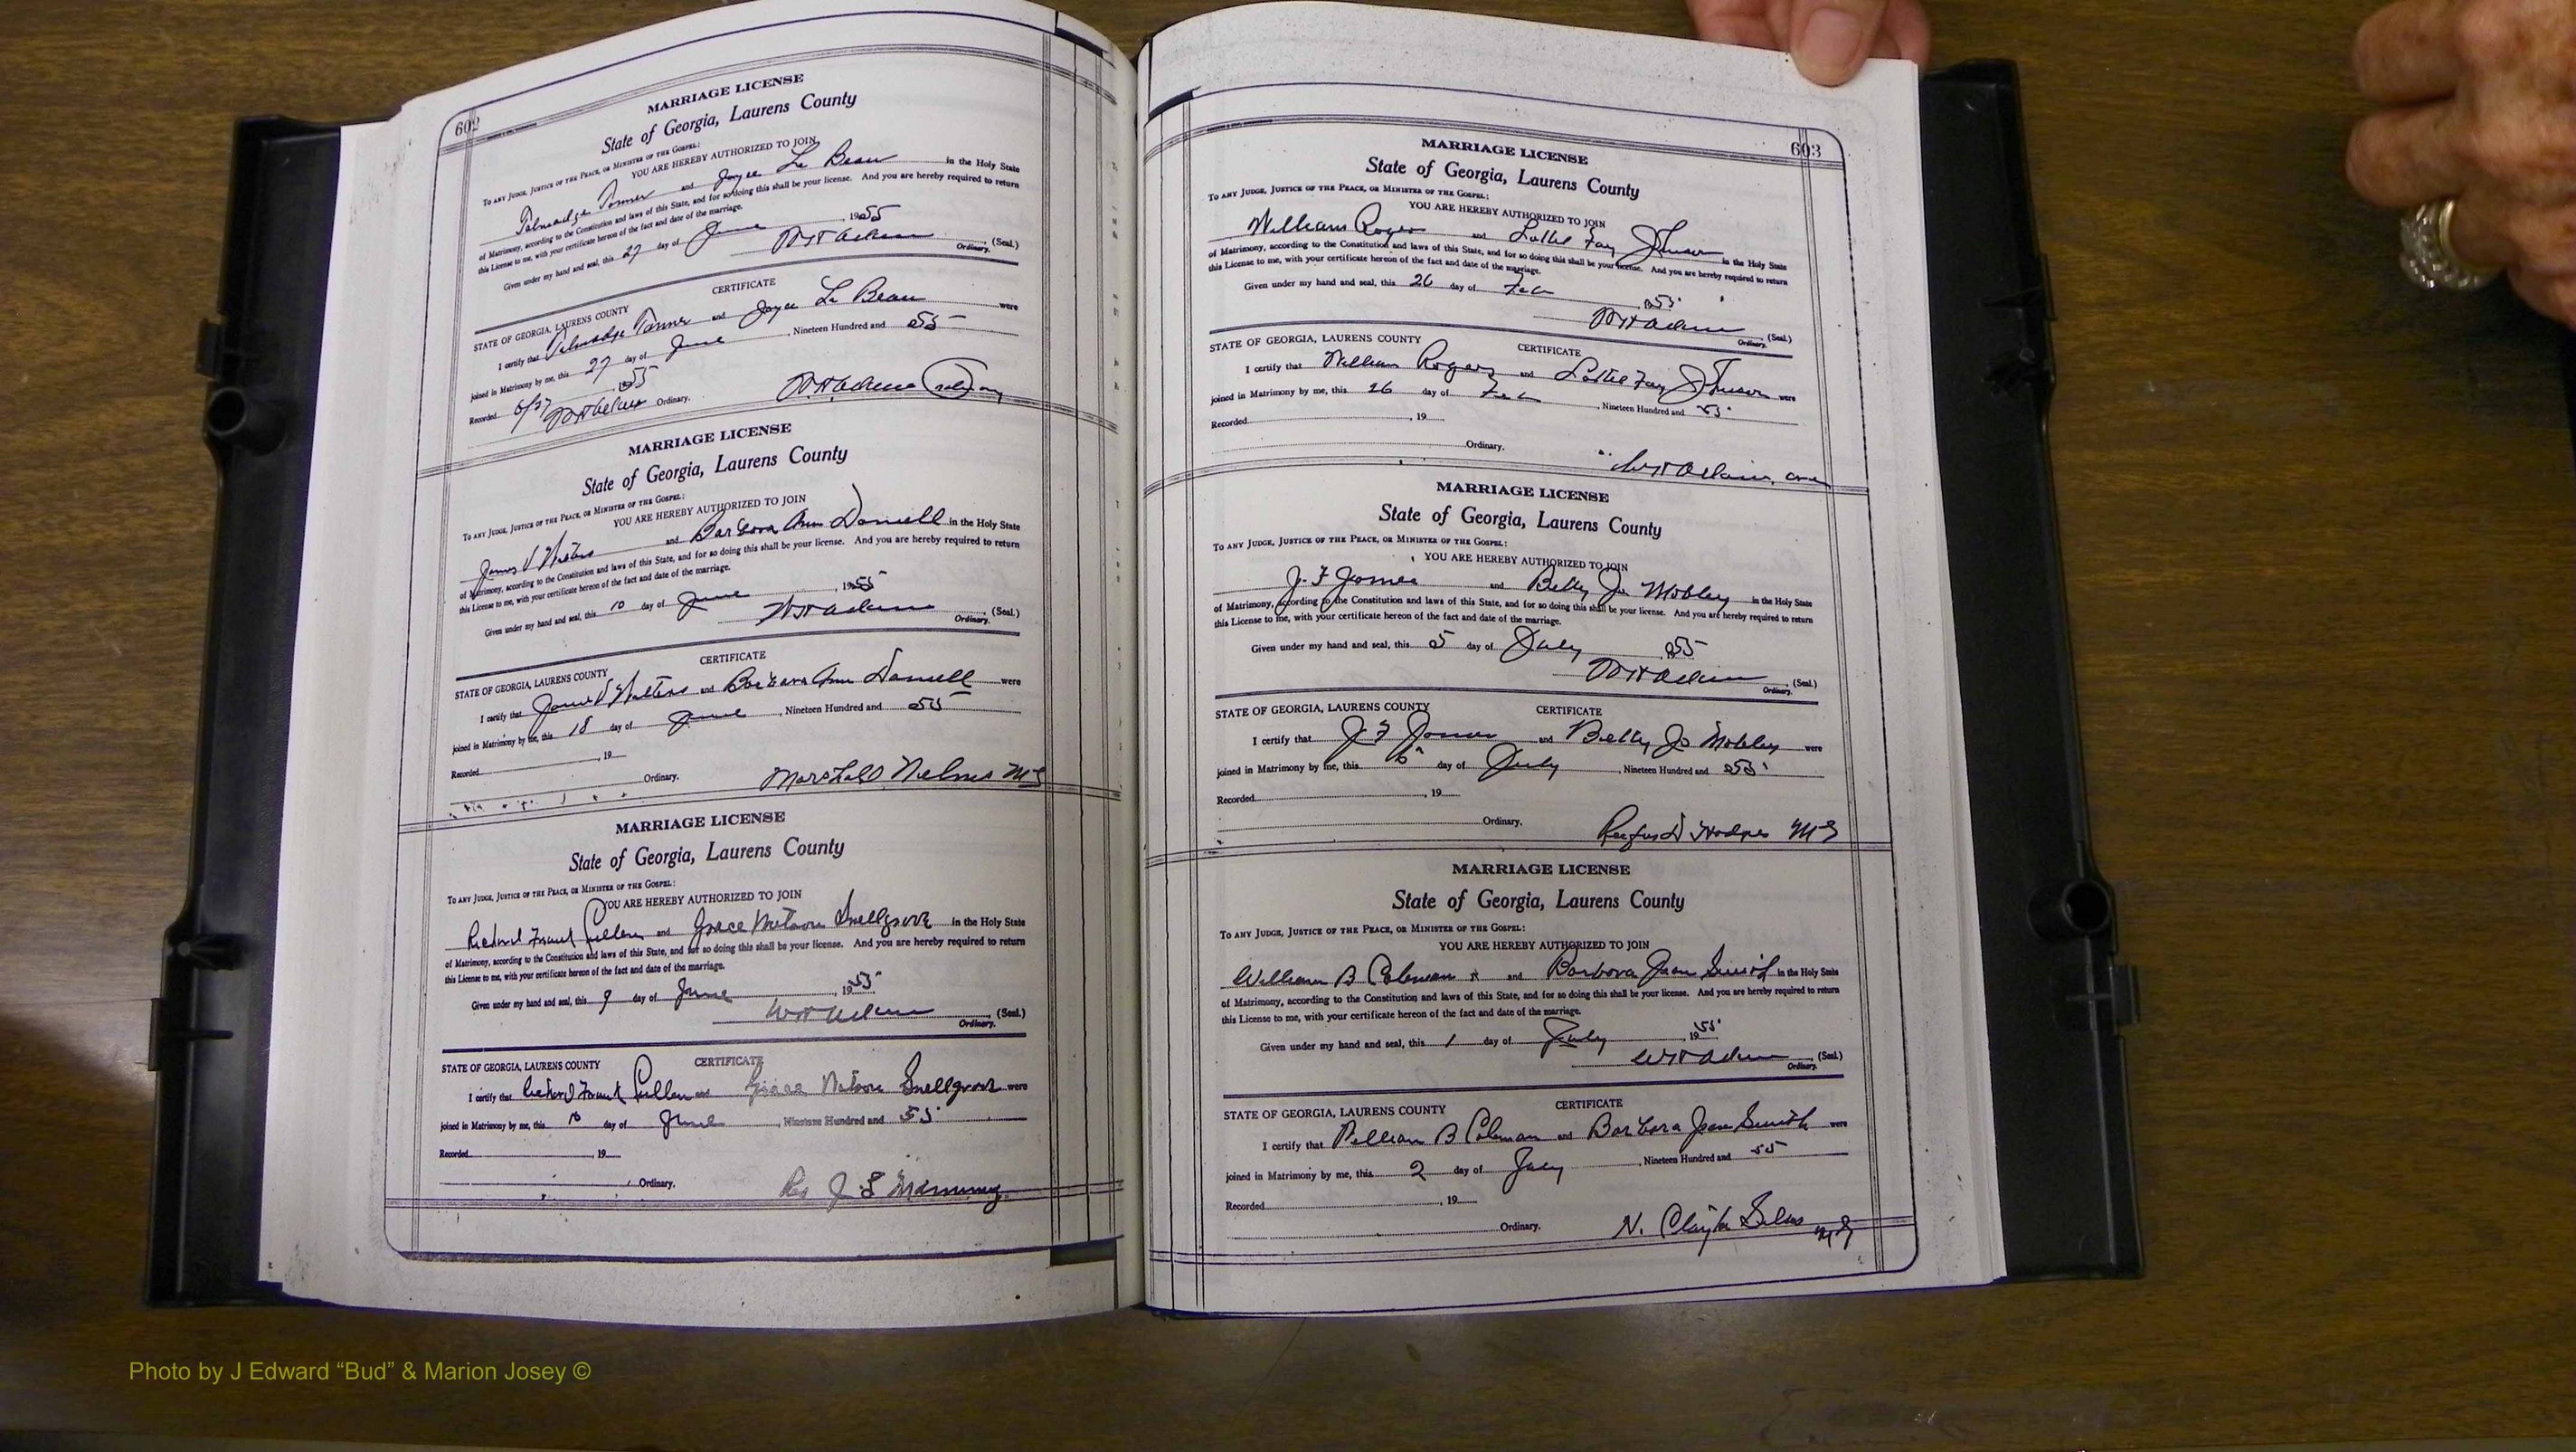 602
MARRIAGE LICENSE
State of Georgia, Laurens County
To any Judge, Justice of the Peace, or Minister of the Gospel:
YOU ARE HEREBY AUTHORIZED TO JOIN
Talmadge Tanner and Joyce Le Beau in the Holy State
of Matrimony, according to the Constitution and laws of this State, and for so doing this shall be your license. And you are hereby required to return
this License to me, with your certificate hereon of the fact and date of the marriage.
Given under my hand and seal, this 27 day of June, 1955
(Seal.)
Ordinary.
CERTIFICATE
STATE OF GEORGIA, LAURENS COUNTY
I certify that Talmadge Tanner and Joyce Le Beau were
joined in Matrimony by me, this 27 day of June, Nineteen Hundred and 55
Recorded 6/27 1955
Ordinary.
MARRIAGE LICENSE
State of Georgia, Laurens County
To any Judge, Justice of the Peace, or Minister of the Gospel:
YOU ARE HEREBY AUTHORIZED TO JOIN
James and Barbara Ann Daniell in the Holy State
of Matrimony, according to the Constitution and laws of this State, and for so doing this shall be your license. And you are hereby required to return
this License to me, with your certificate hereon of the fact and date of the marriage.
Given under my hand and seal, this 10 day of June, 1955
(Seal.)
Ordinary.
CERTIFICATE
STATE OF GEORGIA, LAURENS COUNTY
I certify that James and Barbara Ann Daniell were
joined in Matrimony by me, this 18 day of June, Nineteen Hundred and 55
Recorded, 19
Ordinary.
Marshall Nelms MG
MARRIAGE LICENSE
State of Georgia, Laurens County
To any Judge, Justice of the Peace, or Minister of the Gospel:
YOU ARE HEREBY AUTHORIZED TO JOIN
Richard Frank Cullen and Grace Snellgrove in the Holy State
of Matrimony, according to the Constitution and laws of this State, and for so doing this shall be your license. And you are hereby required to return
this License to me, with your certificate hereon of the fact and date of the marriage.
Given under my hand and seal, this 9 day of June, 1955
(Seal.)
Ordinary.
STATE OF GEORGIA, LAURENS COUNTY CERTIFICATE
I certify that Richard Frank Cullen and Grace Snellgrove were
joined in Matrimony by me, this day of June, Nineteen Hundred and 55
Recorded, 19
Ordinary.
Rev J Manning
603
MARRIAGE LICENSE
State of Georgia, Laurens County
To any Judge, Justice of the Peace, or Minister of the Gospel:
YOU ARE HEREBY AUTHORIZED TO JOIN
William Rogers and Lottie Fay Johnson in the Holy State
of Matrimony, according to the Constitution and laws of this State, and for so doing this shall be your license. And you are hereby required to return
this License to me, with your certificate hereon of the fact and date of the marriage.
Given under my hand and seal, this 26 day of Feb 1955
(Seal.)
Ordinary.
STATE OF GEORGIA, LAURENS COUNTY CERTIFICATE
I certify that William Rogers and Lottie Fay Johnson were
joined in Matrimony by me, this 26 day of Feb, Nineteen Hundred and 55
Recorded, 19
Ordinary.
MARRIAGE LICENSE
State of Georgia, Laurens County
To any Judge, Justice of the Peace, or Minister of the Gospel:
YOU ARE HEREBY AUTHORIZED TO JOIN
J. F Jones and Betty Jo Mobley in the Holy State
of Matrimony, according to the Constitution and laws of this State, and for so doing this shall be your license. And you are hereby required to return
this License to me, with your certificate hereon of the fact and date of the marriage.
Given under my hand and seal, this 5 day of July 1955
(Seal.)
Ordinary.
STATE OF GEORGIA, LAURENS COUNTY CERTIFICATE
I certify that J F Jones and Betty Jo Mobley were
joined in Matrimony by me, this 6 day of July, Nineteen Hundred and 55
Recorded, 19
Ordinary.
Rufus D Hodges MG
MARRIAGE LICENSE
State of Georgia, Laurens County
To any Judge, Justice of the Peace, or Minister of the Gospel:
YOU ARE HEREBY AUTHORIZED TO JOIN
William B Coleman and Barbara Jean Smith in the Holy State
of Matrimony, according to the Constitution and laws of this State, and for so doing this shall be your license. And you are hereby required to return
this License to me, with your certificate hereon of the fact and date of the marriage.
Given under my hand and seal, this 1 day of July, 1955
(Seal.)
Ordinary.
STATE OF GEORGIA, LAURENS COUNTY CERTIFICATE
I certify that William B Coleman and Barbara Jean Smith were
joined in Matrimony by me, this 2 day of July, Nineteen Hundred and 55
Recorded, 19
Ordinary.
N. MG
Photo by J Edward “Bud” & Marion Josey ©